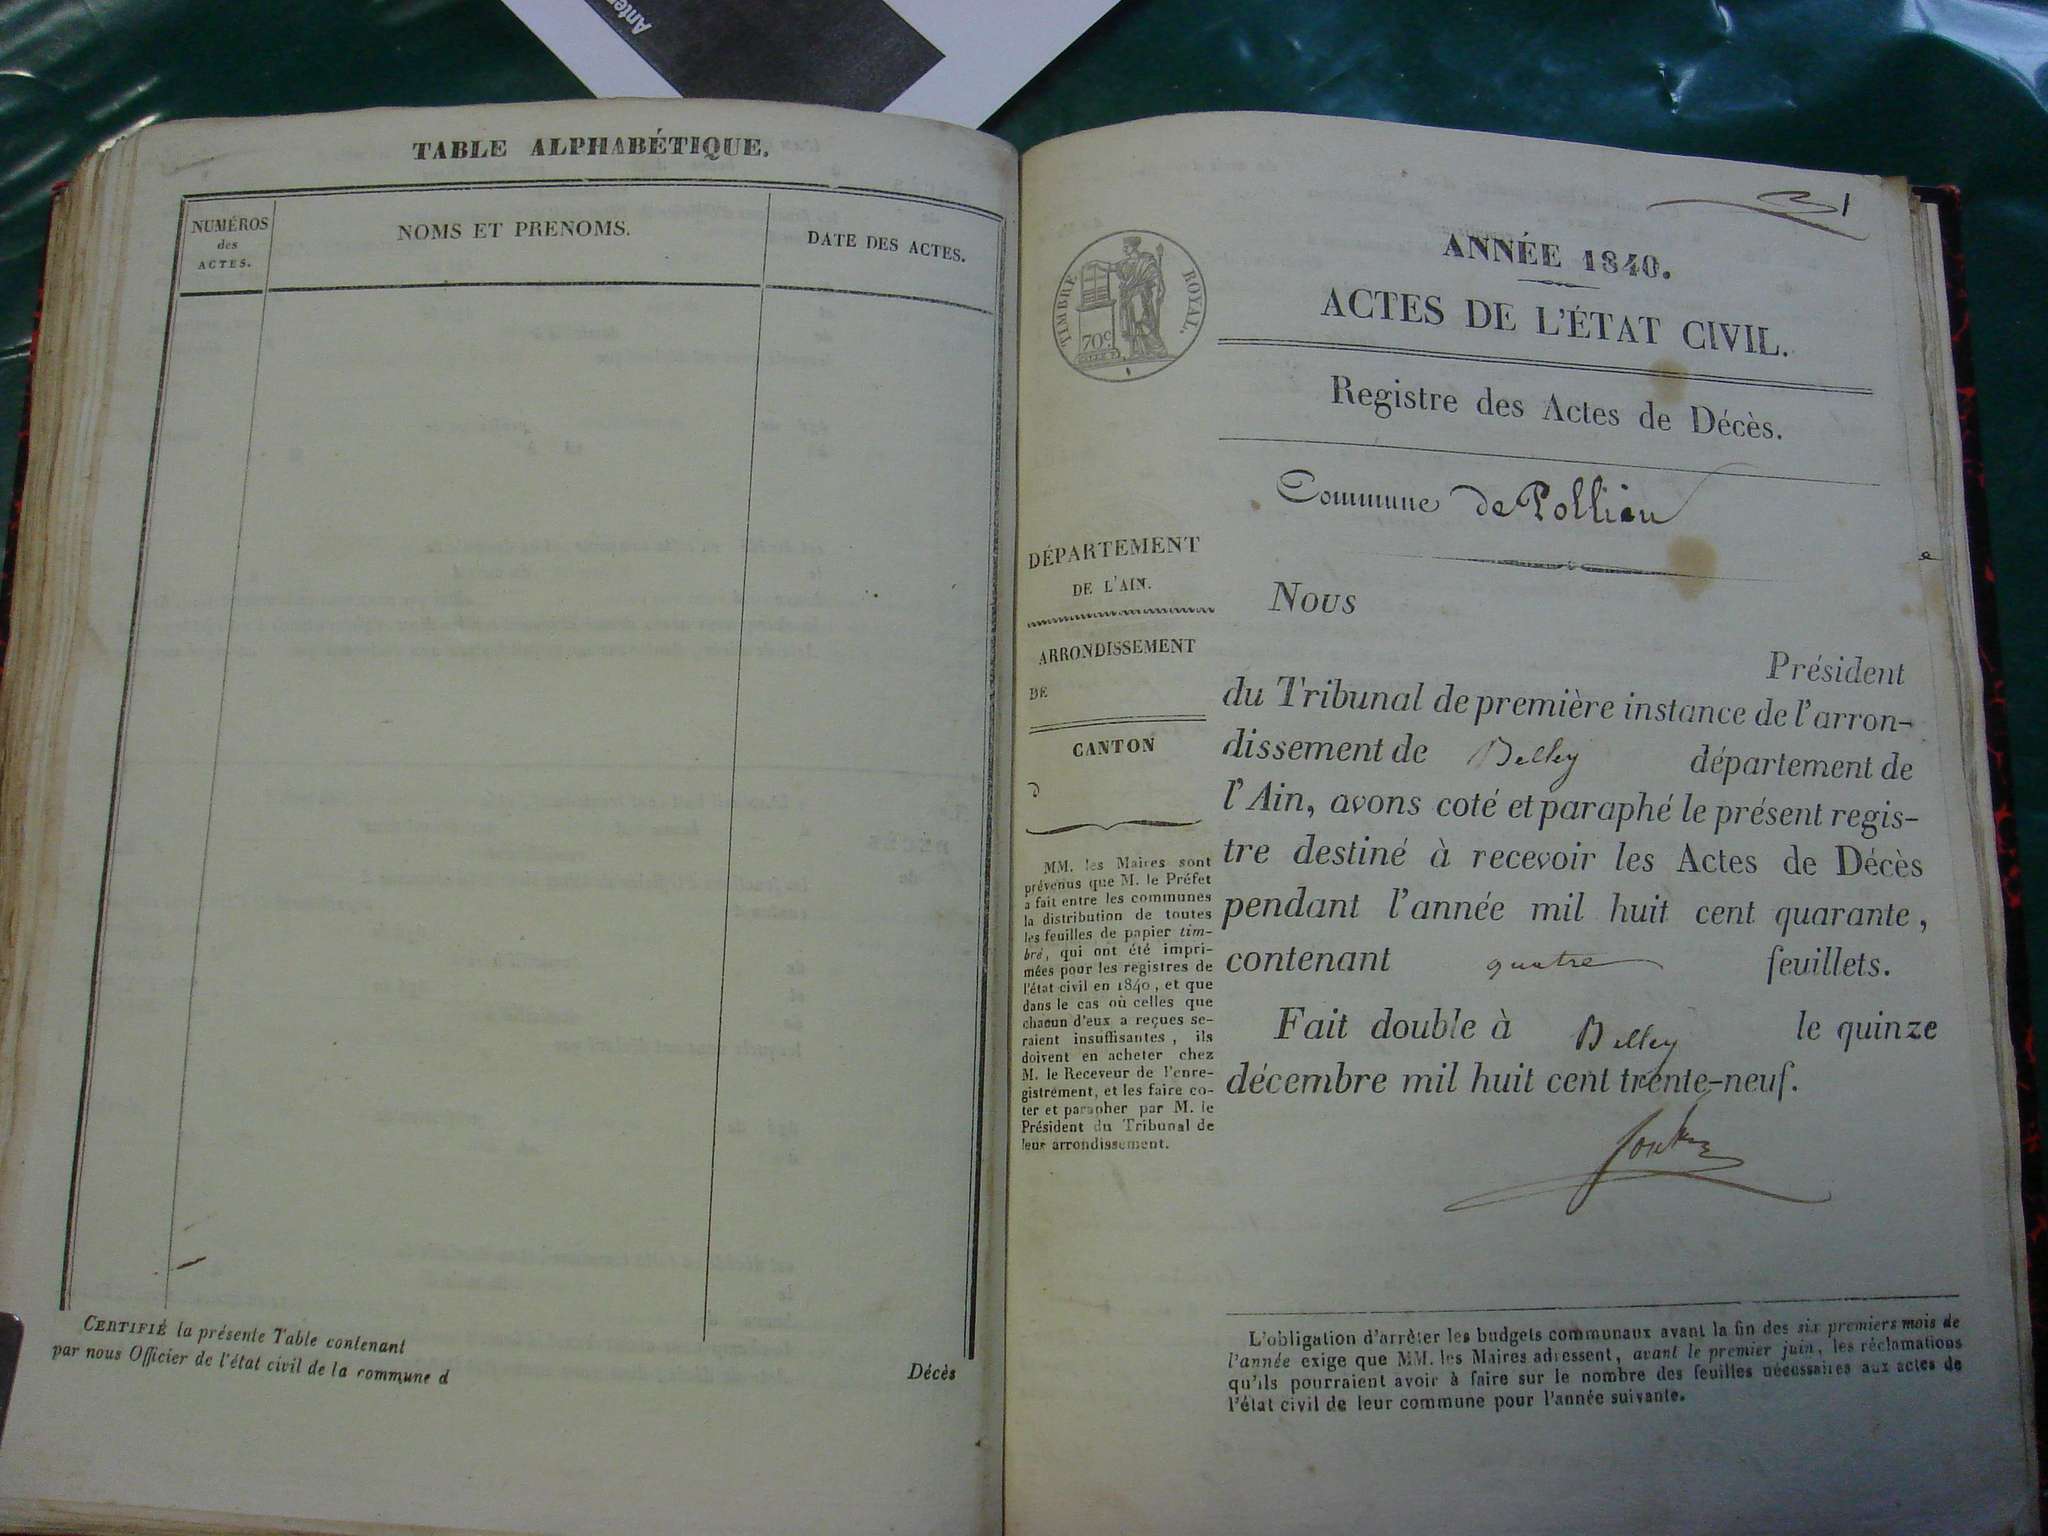 TABLE ALPHABÉTIQUE.
NUMÉROS
des
ACTES.
NOMS ET PRENOMS.
DATE DES ACTES.
CERTIFIÉ la présente Table contenant
Décès
par nous Officier de l'état civil de la commune d
1
TIMBRE ROYAL.
70c
ANNÉE 1840.
ACTES DE L'ÉTAT CIVIL.
Registre des Actes de Décès.
Commune de Pollieu
DÉPARTEMENT
DE L'AIN.
ARRONDISSEMENT
DE
CANTON
d
MM. les Maires sont
prévenus que M. le Préfet
a fait entre les communes
la distribution de toutes
les feuilles de papier tim-
bré, qui ont été impri-
mées pour les registres de
l'état civil en 1840, et que
dans le cas où celles que
chacun d'eux a reçues se-
raient insuffisantes, ils
doivent en acheter chez
M. le Receveur de l'enre-
gistrement, et les faire co-
ter et parapher par M. le
Président du Tribunal de
leur arrondissement.
Nous
Président
du Tribunal de première instance de l'arron-
dissement de Belley département de
l'Ain, avons coté et paraphé le présent regis-
tre destiné à recevoir les Actes de Décès
pendant l'année mil huit cent quarante,
contenant quatre feuillets.
Fait double à Belley le quinze
décembre mil huit cent trente-neuf.
L'obligation d'arrêter les budgets communaux avant la fin des six premiers mois de
l'année exige que MM. les Maires adressent, avant le premier juin, les réclamations
qu'ils pourraient avoir à faire sur le nombre des feuilles nécessaires aux actes de
l'état civil de leur commune pour l'année suivante.